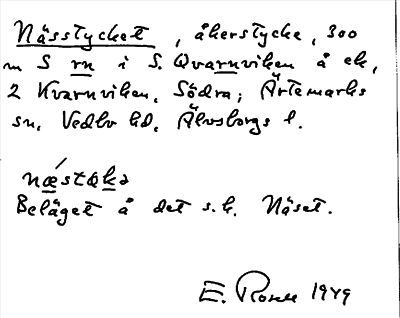 Nässtycket, åkerstycke, 300
m S rn i S. Qvarnviken å ek,
2 Kvarnviken, Södra; Ärtemarks
sn, Vedbo hd, Älvsborgs l.
næ´støkə
Beläget å det s.k. Näset.
E. Rosell 1949